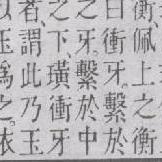 衡佩上之衡
曰衝牙繫於
之牙。繫於中
之下璜衝牙
者謂此乃玉
以玉爲之。依